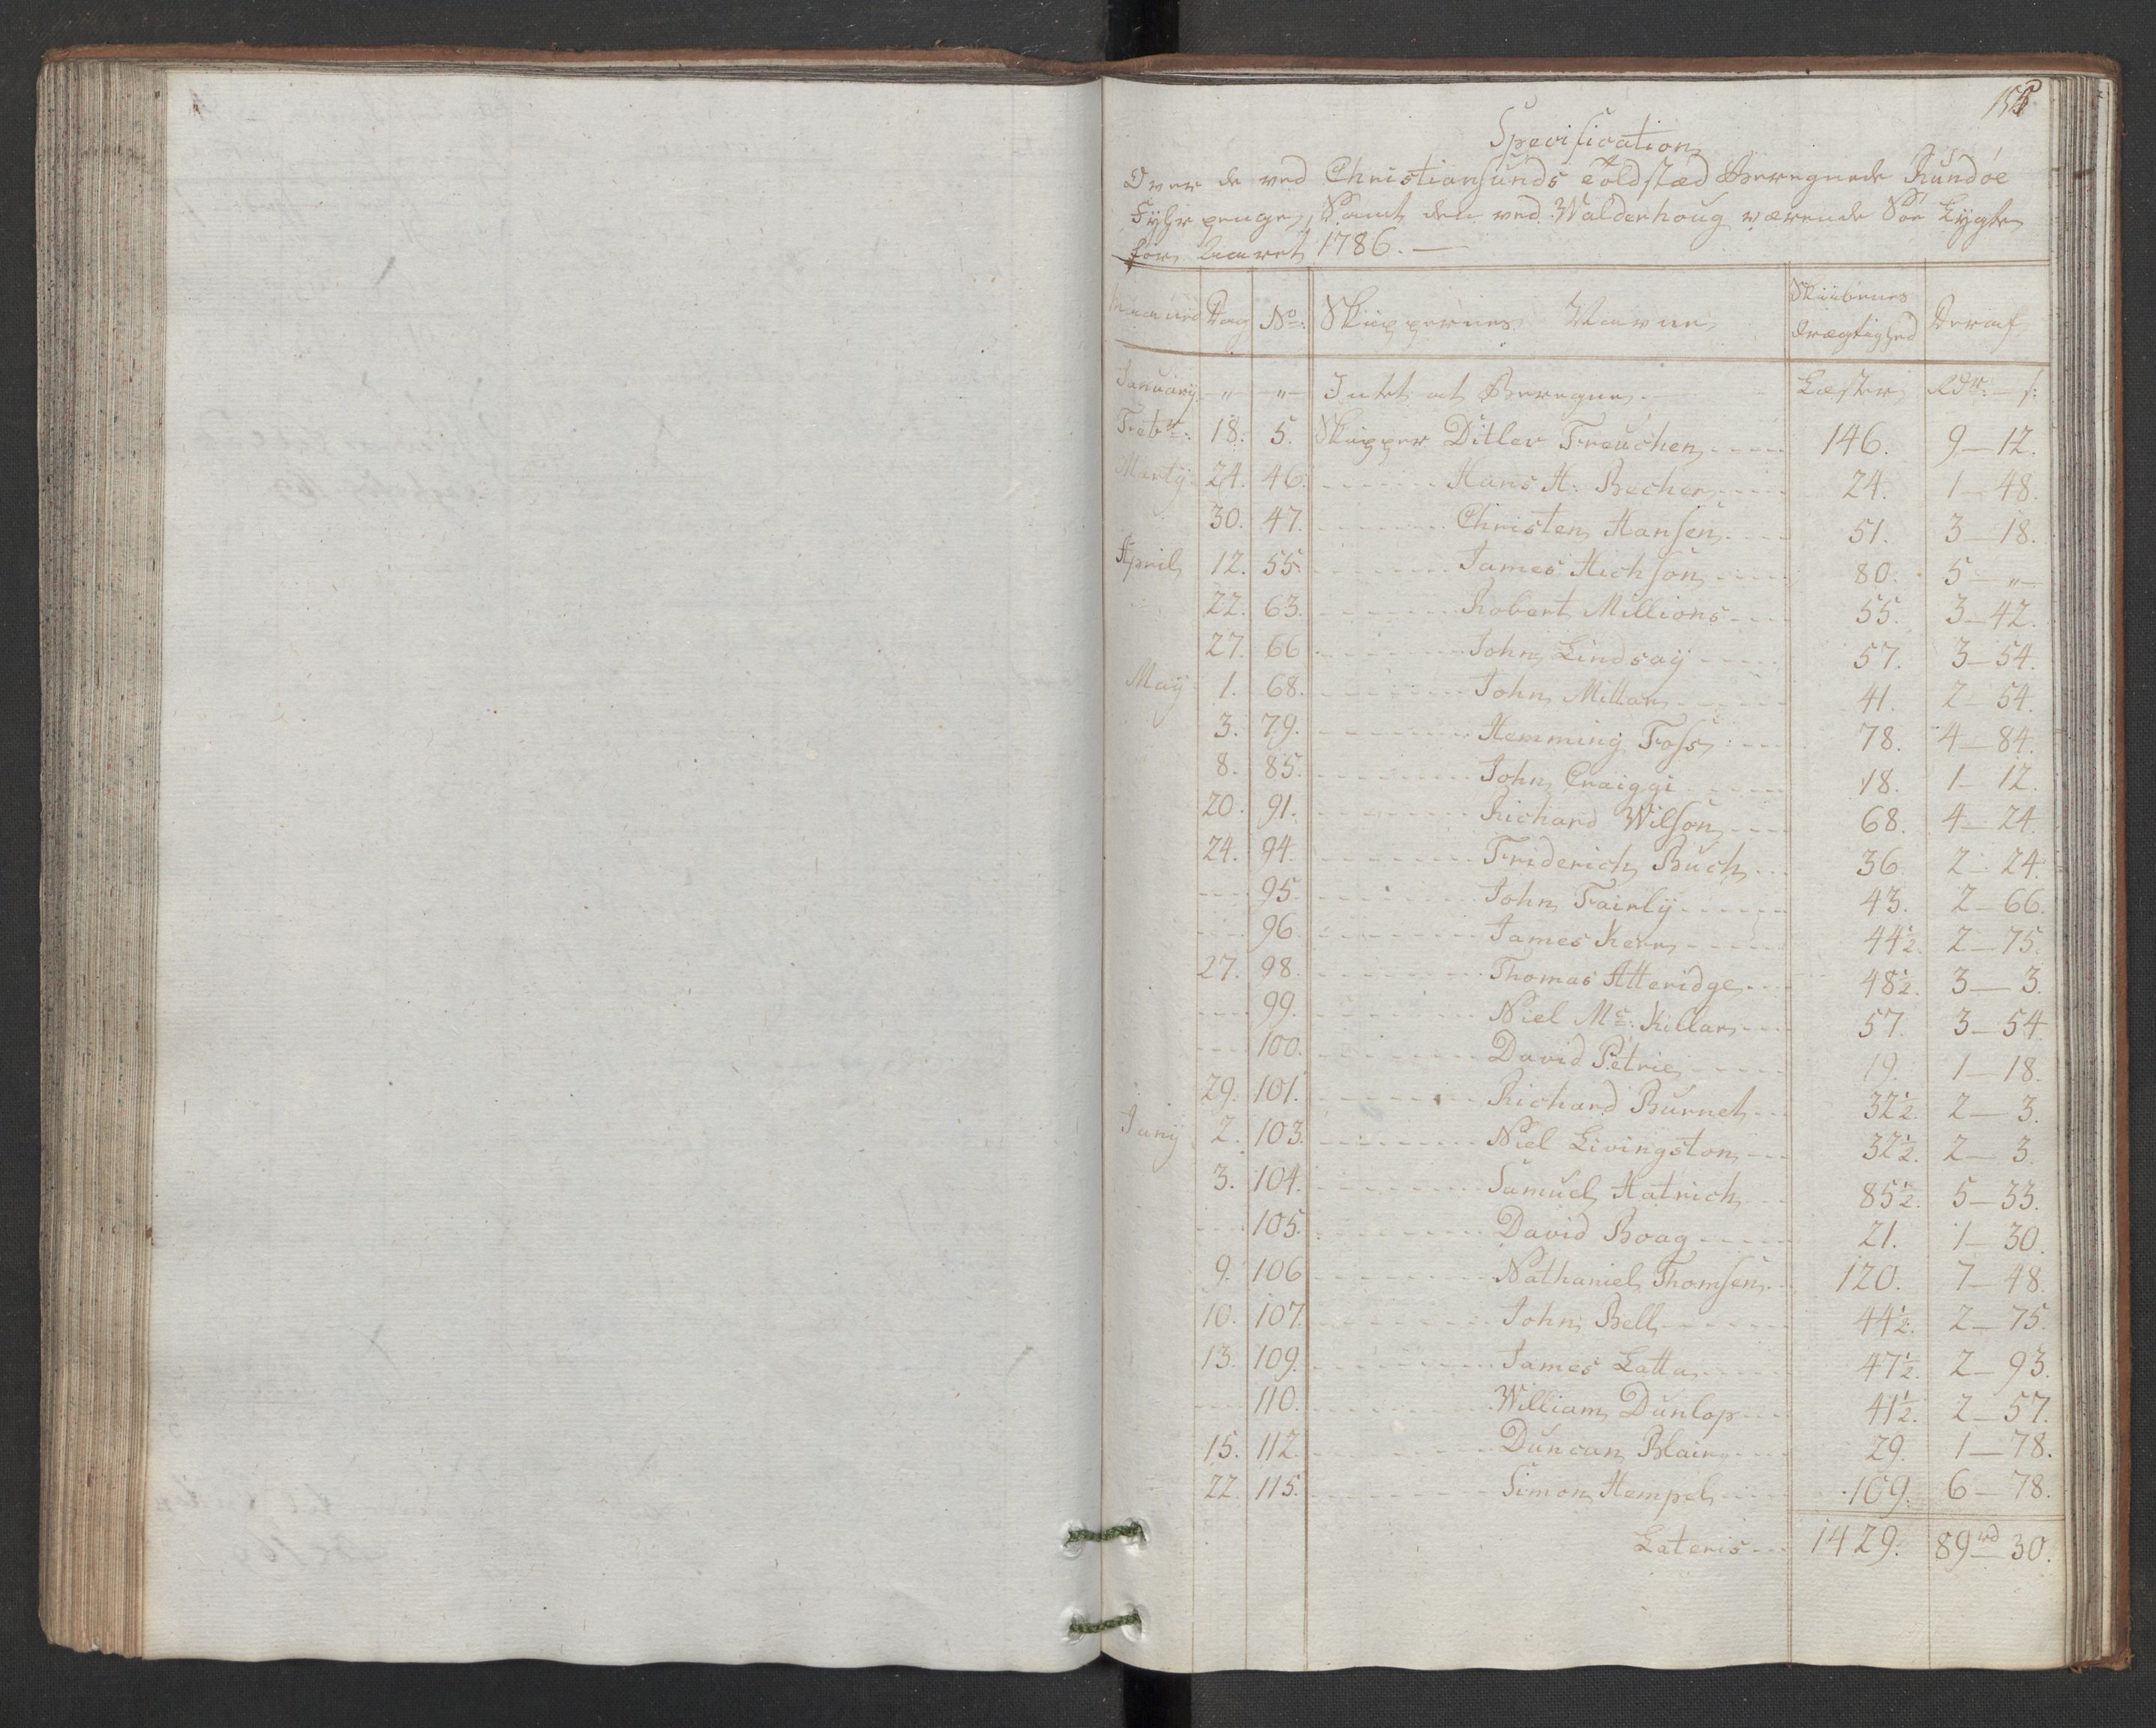 155
Specification
Over de ved Christiansunds Toldsted Beregnede Rundøe
Fyhrpenge, Samt den ved Walderhoug værende Søe Lygte
for Aaret 1786. —
Maaned Dag No: Skippernes Navne Skibenes Drægtighed Deraf
January — " — — " — Intet at Beregne. Læster Rdr: — s:
Febr: 18. 5. Skipper Ditlev Freuchen 146. 9 — 12.
Martÿ 24. 46. Hans H: Becher 24. 1 — 48.
30. 47. Christen Hansen 51. 3 — 18.
April 12. 55. James Hichson 80. 5 — " —
22. 63. Robert Millions 55. 3 — 42.
27. 66 John Lindsaÿ 57. 3 — 54.
Maÿ 1. 68. John Millar 41. 2 — 54.
3. 79. Hemming Foss 78. 4 — 84.
8. 85. John Craiggi 18. 1 — 12.
20. 91. Richard Wilson 68. 4 — 24.
24. 94. Friderich Buch 36. 2 — 24.
95. John Fairlÿ 43. 2 — 66.
96. James Kerr 44½. 2 — 75.
27. 98. Thomas Atteridge 48½. 3 — 3.
99. Niel Mc: Killar 57. 3 — 54.
100. David Petrie 19. 1 — 18.
29. 101. Richard Burnet 32½. 2 — 3.
Junÿ 2. 103. Niel Livingston 32½. 2 — 3.
3. 104. Samuel Hatrich 85½. 5 — 33.
105. David Boag 21. 1 — 30.
9. 106 Nathaniel Thomsen 120. 7 — 48.
10. 107. John Bell 44½. 2 — 75.
13. 109. James Latta 47½. 2 — 93.
110. William Dunlop 41½. 2 — 57.
15. 112. Duncan Blair 29. 1 — 78.
22. 115. Simon Hempel 109. 6 — 78.
Lateris 1429. 89 rd 30.